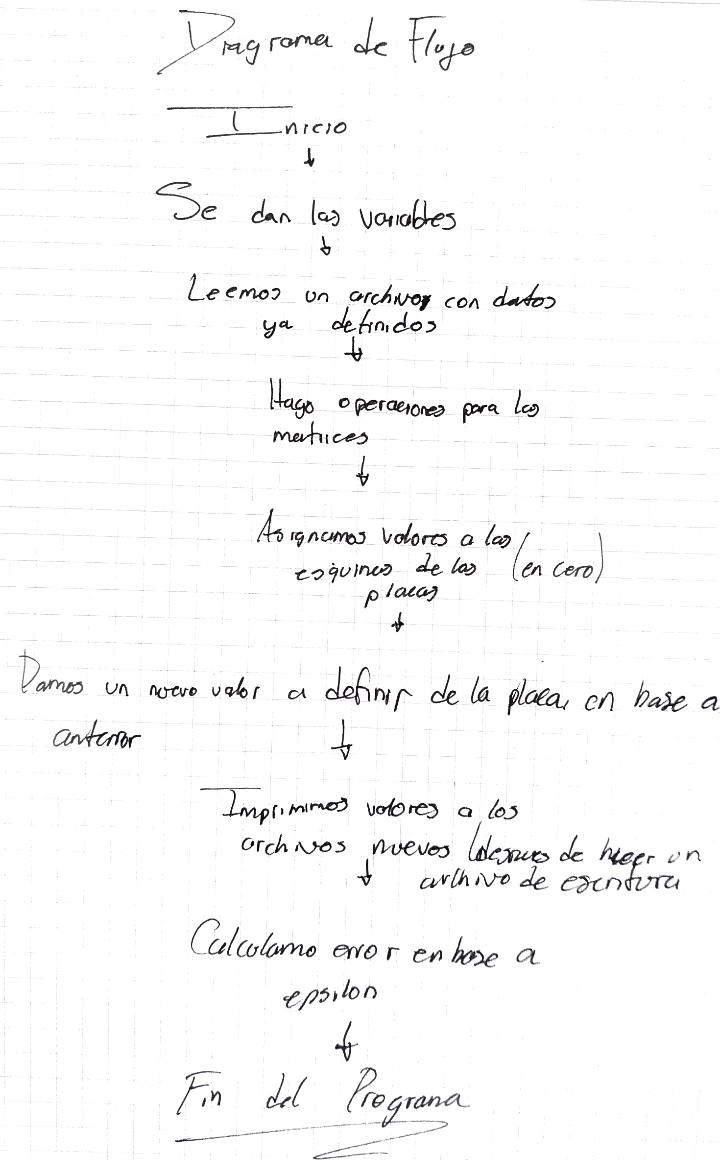 Diagrama de Flujo
Inicio
Se dan las variables
Leemos un archivo con datos
ya definidos
Hago operaciones para las
matrices
Asignamos valores a las
esquinas de las (en cero)
placas
Damos un nuevo valor a definir de la placa, en base a
anterior
Imprimimos valores a los
archivos nuevos (despues de hacer un
archivo de escritura
Calculamo error en base a
epsilon
Fin del Programa